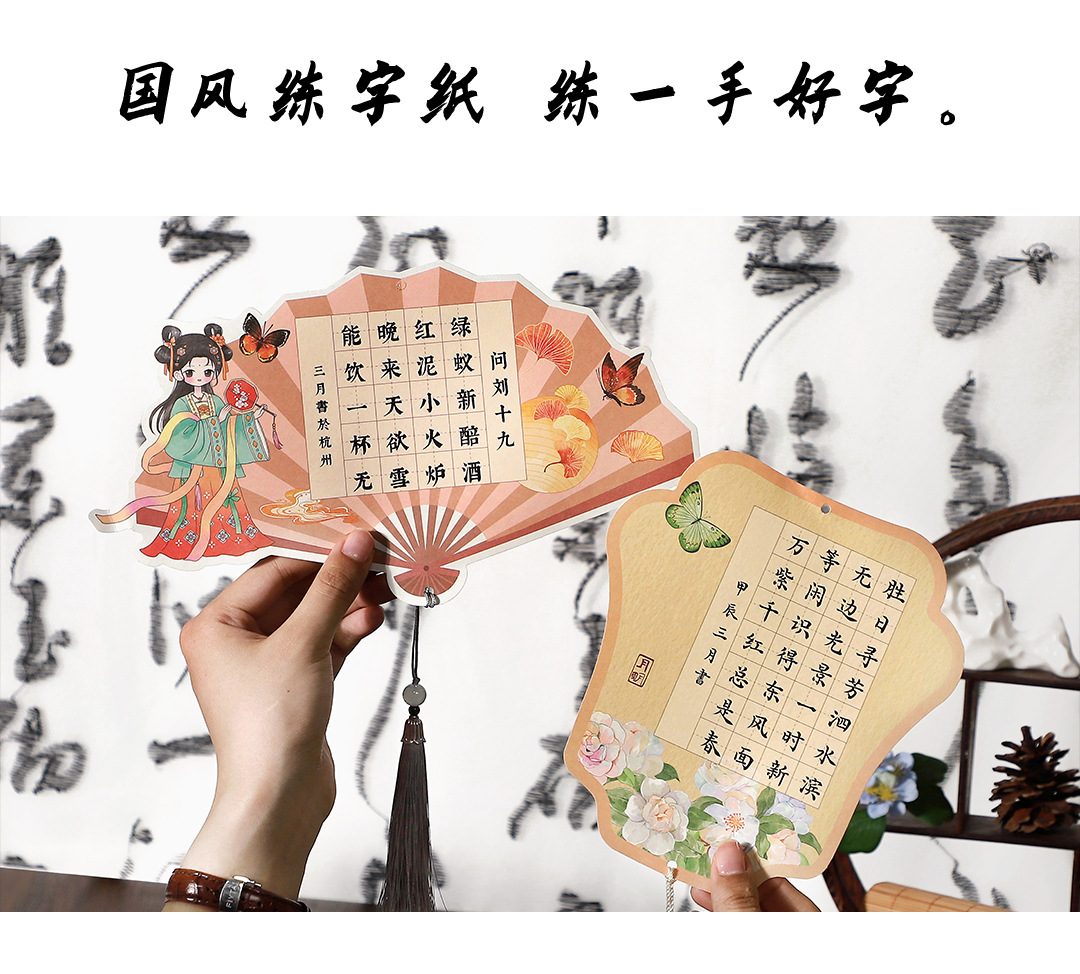 国风练字纸 练一手好字。
问刘十九
绿蚁新醅酒
红泥小火炉
晚来天欲雪
能饮一杯无
三月書於杭州
胜日寻芳泗水滨
无边光景一时新
等闲识得东风面
万紫千红总是春
甲辰三月書